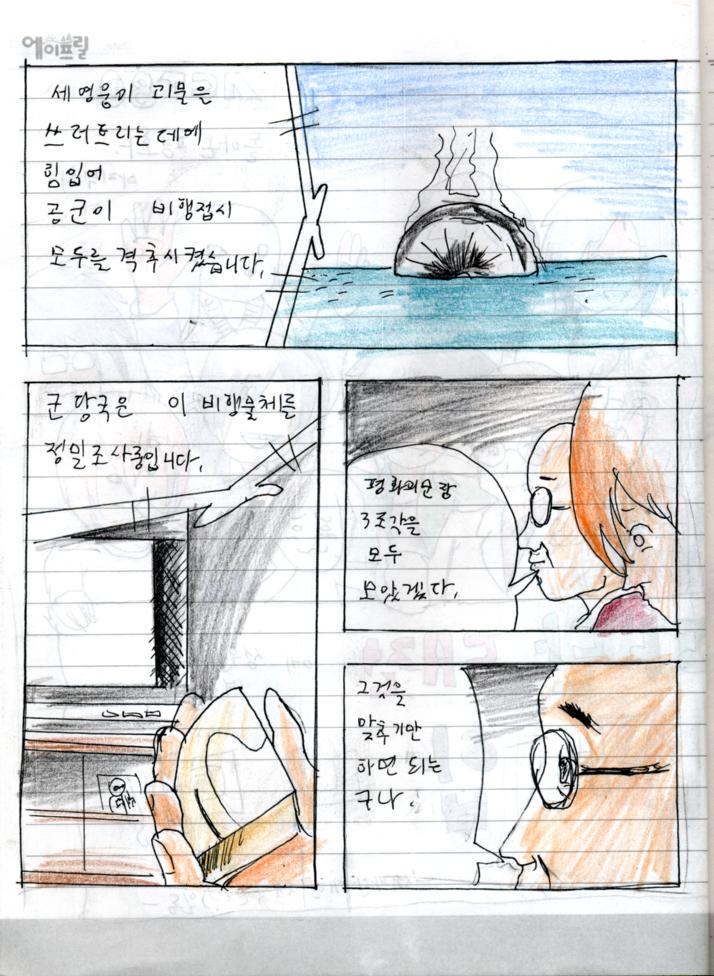 에이프릴
세 영웅이 괴물을
쓰러트리는데에
힘입어
공군이 비행접시
모두를 격추시켰습니다.
군 당국은 이 비행물체를
정밀조사중입니다.
3조각을
모두
모았겠다.
그것을
맞추기만
하면 되는
구나.